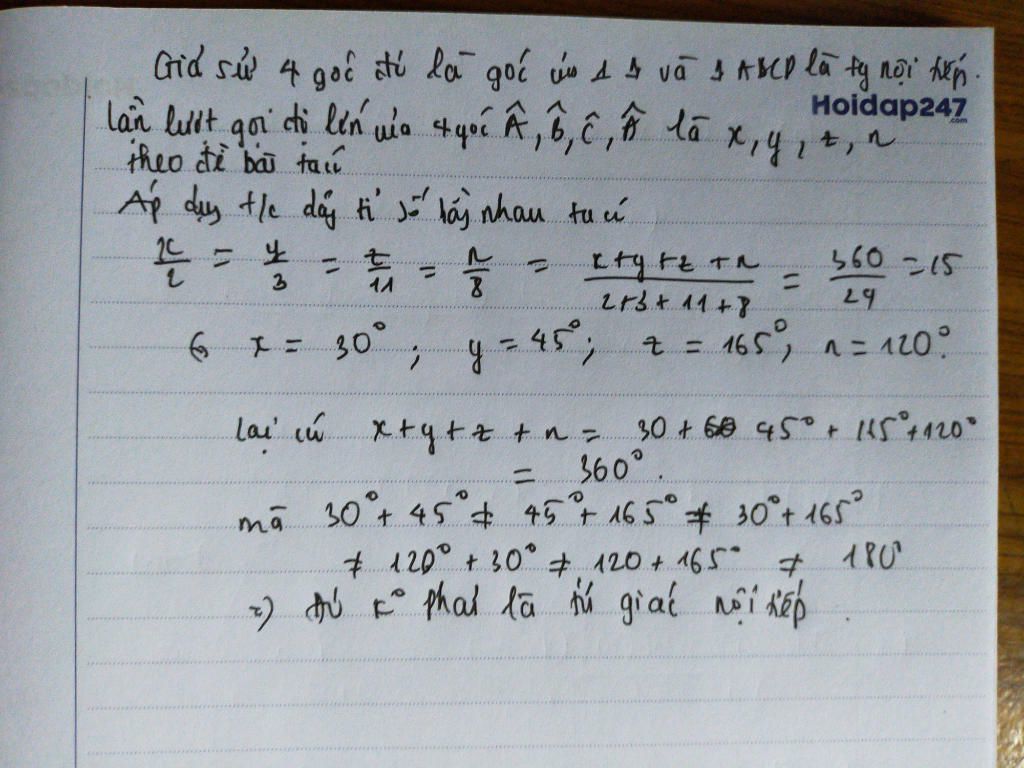 Giả sử 4 góc đó là góc của 1 và ABCD là tg nội tiếp.
Hoidap247
.com
lần lượt gọi độ lớn của 4 góc Â, B̂, Ĉ, D̂ là x, y, z, n
theo đề bài ta có
Áp dụng t/c dãy tỉ số bằng nhau ta có
x/2 = y/3 = z/11 = n/8 = (x+y+z+n)/(2+3+11+8) = 360/24 = 15
x = 30°; y = 45°; z = 165°; n = 120°.
lại có x+y+z+n = 30 + 45° + 165° + 120°
= 360°.
mà 30° + 45° ≠ 45° + 165° ≠ 30° + 165°
≠ 120° + 30° ≠ 120 + 165° ≠ 180°
=) đó k° phải là tứ giác nội tiếp.